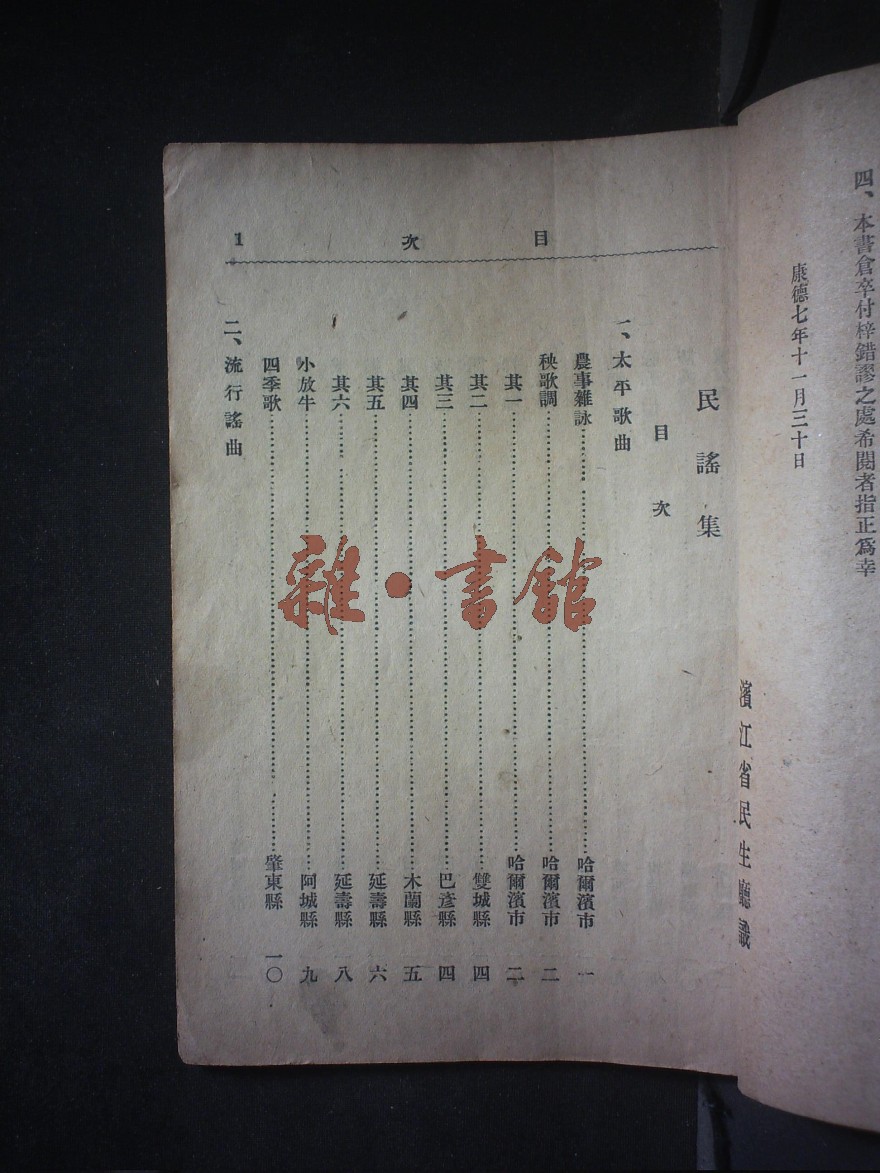 四、本書倉卒付梓錯謬之處希閱者指正爲幸
康德七年十一月三十日
濱江省民生廳識
目次 1
民謠集
目次
一、太平歌曲
農事雜詠……哈爾濱市 一
秧歌調……哈爾濱市 二
其一……哈爾濱市 二
其二……雙城縣 四
其三……巴彥縣 四
其四……木蘭縣 五
其五……延壽縣 六
其六……延壽縣 八
小放牛……阿城縣 九
四季歌……肇東縣 一〇
二、流行謠曲
雜·書館